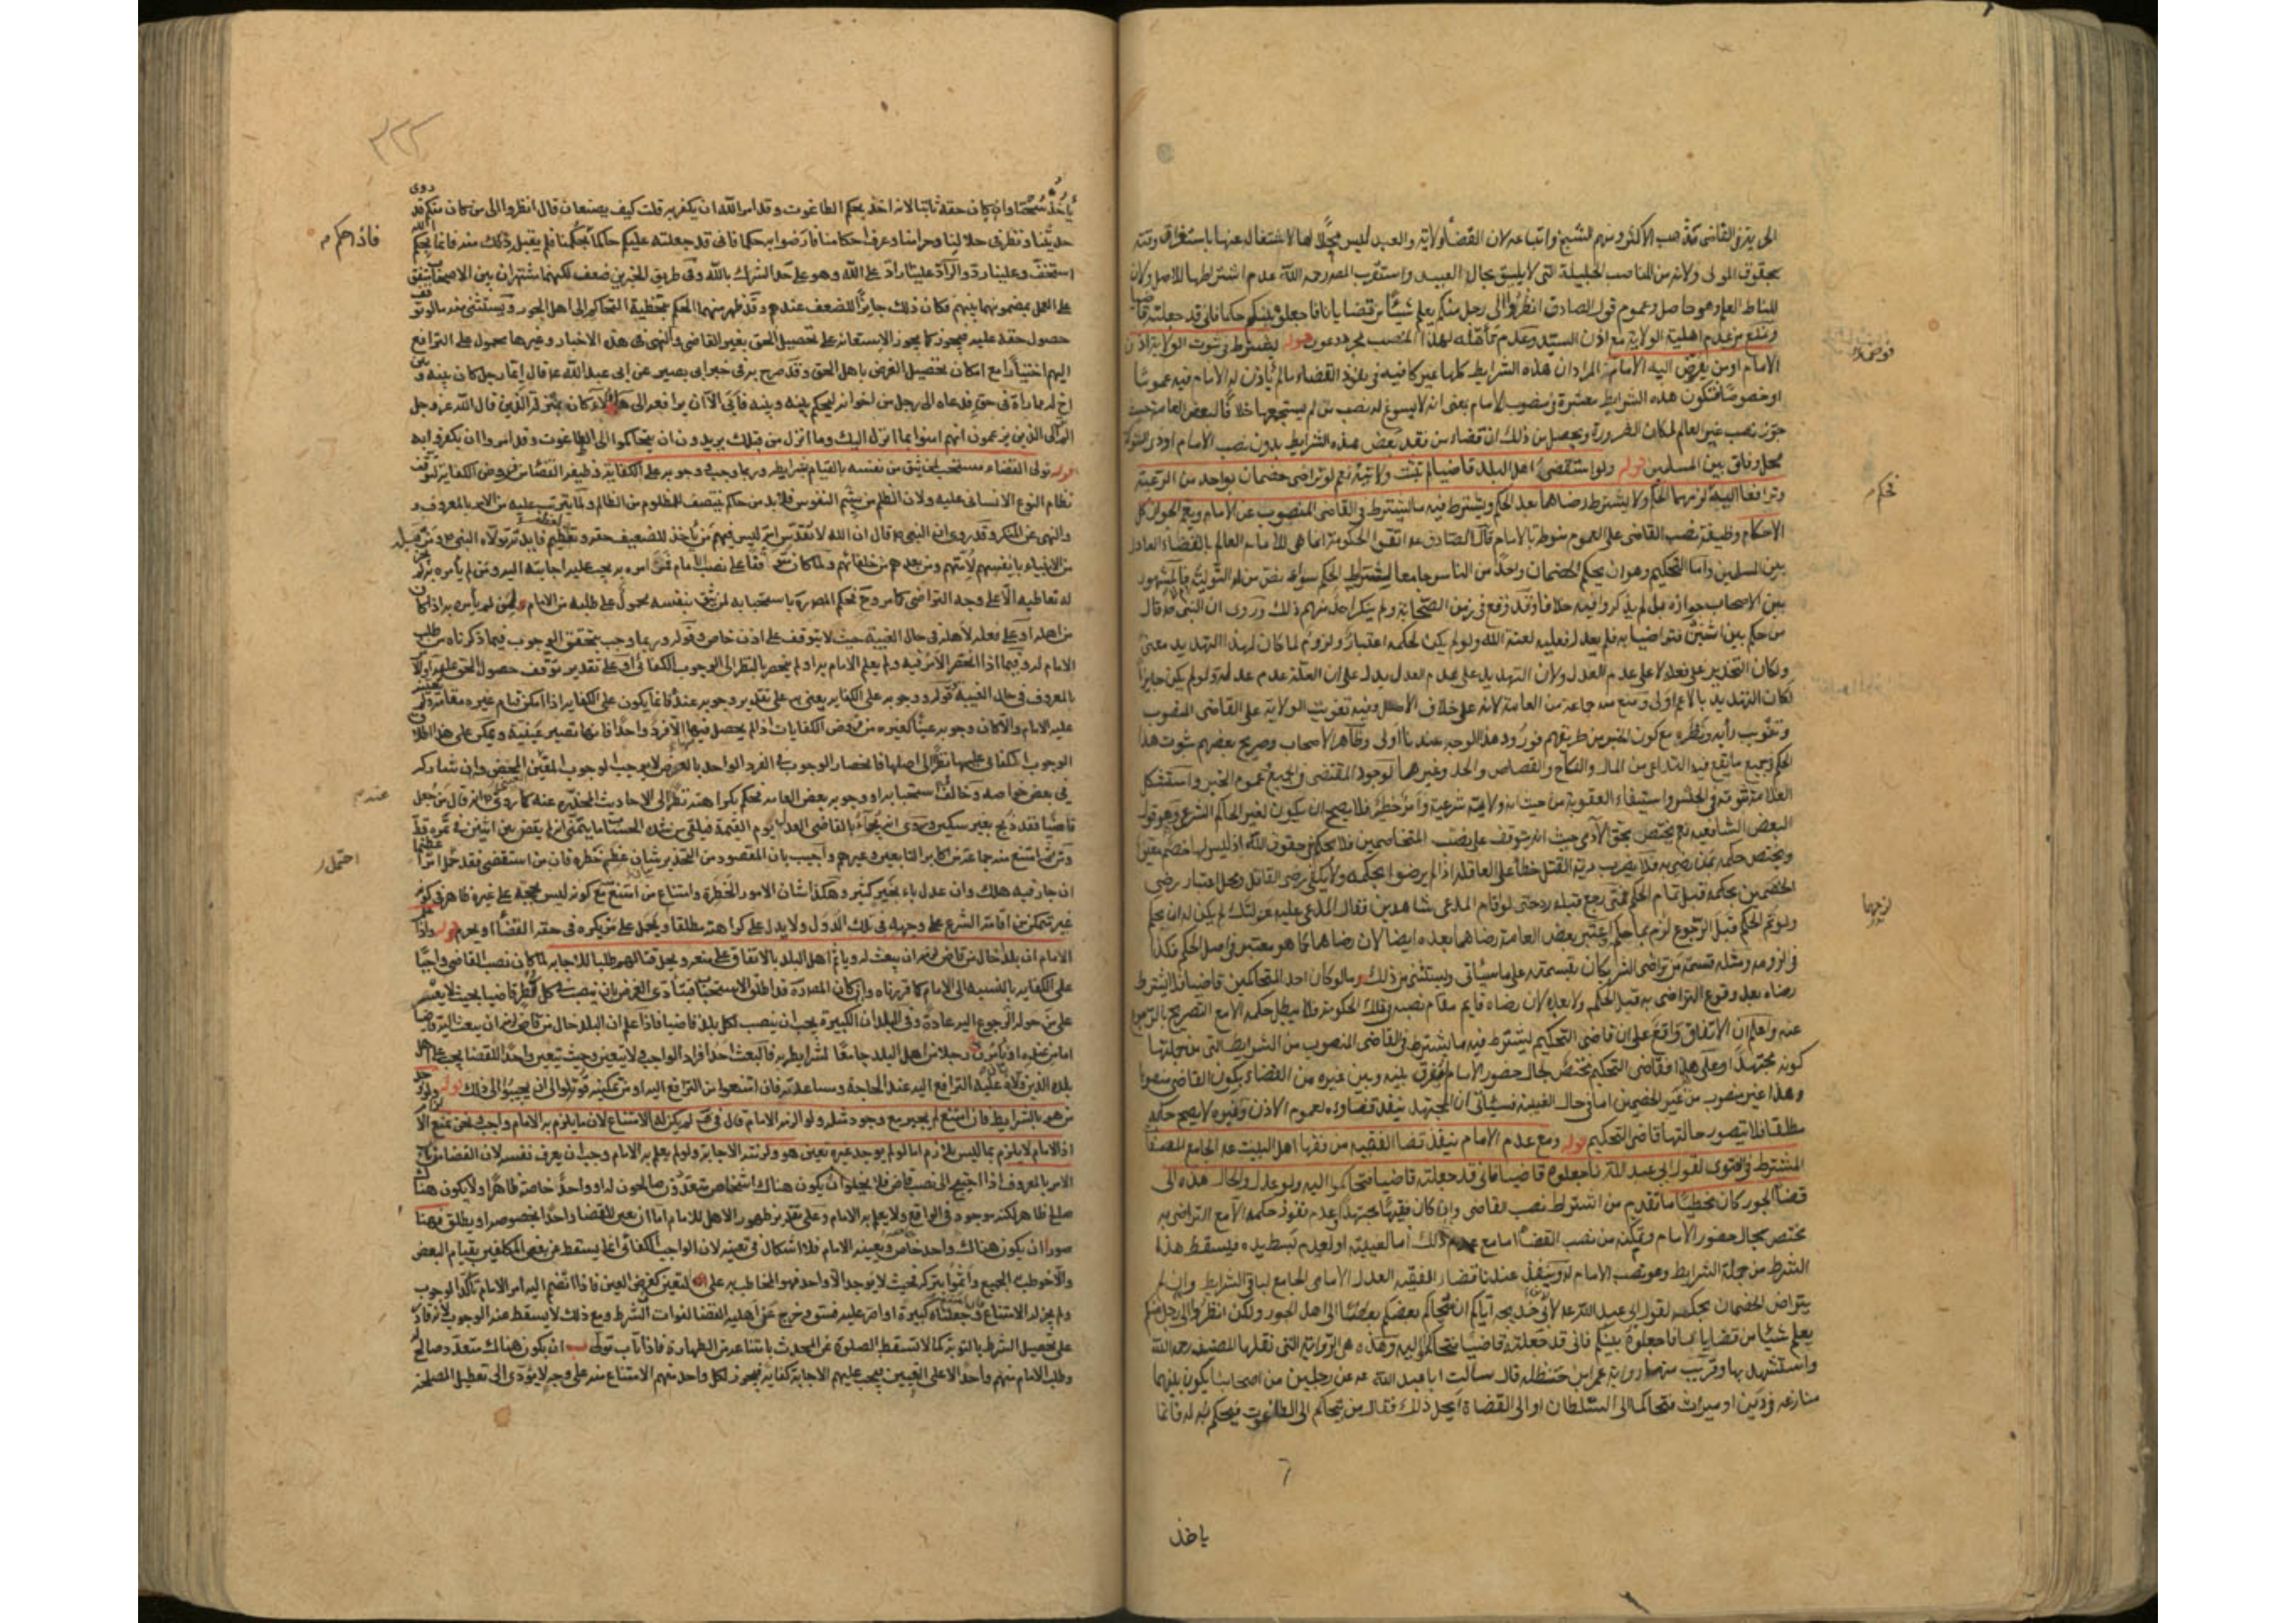 الى يتزن القاضى مذهب الاكثر ومنهم الشيخ واتباعه لان القضاء ولاية والعبد ليس محلا لها لاشتغاله عنها باستغراق وقته
بحقوق المولى ولانه من المناصب الجليلة التى لا يليق بحال العبيد واستقرب المصـ رحمه الله عدم اشتراطها للاصل ولان
المناط العلم وهو حاصل وعموم قول الصادق انظروا الى رجل منكم يعلم شيئا من قضايانا فاجعلوه بينكم حكما فانى قد جعلته قاضيا
ونمنع من عدم اهلية الولاية مع اذن السيد وعدم تأهله لهذا المنصب مجرد دعوى قوله ليشترط فى ثبوت الولاية اذن
الامام او من يفوض اليه الامام المراد ان هذه الشرايط كلها غير كافية فى نفوذ القضاء ما لم يأذن له الامام فيه عموما
او خصوصا فتكون هذه الشرايط معتبرة فى منصوب الامام بمعنى انه لا يسوغ له نصب من لم يستجمعها خلافا لبعض العامة حيث
جوز نصب غير العالم لمكان الضرورة ويحصل من ذلك ان قضاء من فقد بعض هذه الشرايط بدون نصب الامام او ذى الشوكة
محل وفاق بين المسلمين قوله ولو استقضى اهل البلد قاضيا لم تثبت ولايته نعم لو تراضى خصمان بواحد من الرعية
وترافعا اليه لزمهما الحكم ولا يشترط رضاهما بعد الحكم ويشترط فيه ما يشترط فى القاضى المنصوب عن الامام ويعم الجواز كل
الاحكام وظيفة نصب القاضى على العموم منوطة بالامام قال الصادق عه اتقوا الحكومة انما هى للامام العالم بالقضاء العادل
بين المسلمين واما التحكيم وهو ان يحكم الخصمان واحدا من الناس جامعا لشرايط الحكم سوى نص من له التولية فالمشهور
بين الاصحاب جوازه بل لم يذكروا فيه خلافا وقد وقع فى زمن الصحابة ولم ينكر احد منهم ذلك وروى ان النبى صه قال
من حكم بين اثنين فتراضيا به فلم يعدل فعليه لعنة الله ولو لم يكن لحكمه اعتبار ولزوم لما كان لهذا التهديد معنى
ولكان التحذير على فعله لا على عدم العدل ولان التهديد على عدم العدل يدل على ان العلة عدم عدله ولو لم يكن جايزا
لكان التهديد بالاعم اولى ومنع منه جماعة من العامة لانه على خلاف الاصل وفيه تفويت الولاية على القاضى المنصوب
وتفويت رأيه ونظره مع كون الخبر من طريقهم فورود هذا الوجه عندنا اولى وظاهر الاصحاب وصريح بعضهم ثبوت هذا
الحكم فى جميع ما يقع فيه التداعى من المال والنكاح والقصاص والحد وغيرهما لوجود المقتضى فى الجميع عموم الخبر واستشكل
العلامة ثبوته فى الحبس واستيفاء العقوبة من حيث انه ولاية شرعية وامر خطر فلا يصح ان يكون لغير الحاكم الشرعى وهو قول
البعض الشافعيه نعم يختص بحق الآدمى حيث انه يتوقف على نصب المتخاصمين فلا يحكم فى حقوق الله اذ ليس لها خصم معين
ويختص حكمه بمن رضى به فلا يضرب دية القتل خطأ على العاقله اذا لم يرضوا بحكمه ولا يكفى رضى القاتل ومحل اعتبار رضى
الخصمين بحكمه قبل تمام الحكم فمتى رجع قبله رد حتى لو اقام المدعى شاهدين فقال المدعى عليه عزلتك لم يكن له ان يحكم
ولو تم الحكم قبل الرجوع لزم بما حكم واعتبر بعض العامة رضاهما بعده ايضا لان رضاهما كما هو معتبر فى اصل الحكم فكذا
فى لزومه ومثله قسمة من تراضى الشريكان بقسمته على ما سيأتى ويستثنى من ذلك ما لو كان احد المتحاكمين قاضيا فلا يشترط
رضاه بعد وقوع التراضى به قبل الحكم ولا بعده لان رضاه قايم مقام نصبه فى تلك الحكومة فلا يبطل حكمه الا مع التصريح بالرجوع
عنه واعلم ان الاتفاق واقع على ان قاضى التحكيم يشترط فيه ما يشترط فى القاضى المنصوب من الشرايط التى من جملتها
كونه مجتهدا وعلى هذا فقاضى التحكيم مختص بحال حضور الامام ليفرق بينه وبين غيره من القضاء بكون القاضى منصوبا
وهذا غير منصوب من غير الخصمين اما فى حال الغيبة فسيأتى ان المجتهد ينفذ قضاؤه لعموم الاذن وغيره لا يصح حكمه
مطلقا فلا يتصور حالتها قاضى التحكيم قوله ومع عدم الامام ينفذ قضا الفقيه من فقها اهل البيت عه الجامع للصفات
المشترطة فى الفتوى لقول ابى عبد الله عه فاجعلوه قاضيا فانى قد جعلته قاضيا فتحاكموا اليه ولو عدل والحال هذه الى
قضاة الجور كان مخطئا ما تقدم من اشتراط نصب القاضى وان كان فقيها مجتهدا وعدم نفوذ حكمه الا مع التراضى به
مختص بحال حضور الامام وتمكنه من نصب القضاة اما مع عدم ذلك اما لغيبته او لعدم تبسط يده فيسقط هذا
الشرط من جملة الشرايط وهو نصب الامام له وينفذ عندنا قضاء الفقيه العدل الامامى الجامع لباقى الشرايط وان لم
يتراض الخصمان بحكمه لقول ابى عبد الله عه لابى خديجه اياكم ان يحاكم بعضكم بعضا الى اهل الجور ولكن انظروا الى رجل منكم
يعلم شيئا من قضايانا فاجعلوه بينكم فانى قد جعلته قاضيا فتحاكموا اليه وهذه هى الرواية التى نقلها المصنف رحمه الله
واستشهد بها وقريب منها رواية عمر بن حنظله قال سألت ابا عبد الله عه عن رجلين من اصحابنا يكون بينهما
منازعه فى دين او ميراث فتحاكما الى السلطان او الى القضاة ايحل ذلك فقال من تحاكم الى الطاغوت فيحكم به له فانما
ياخذ
لزمهما
فحكم
٣٢٢
يأخذ سحتا وان كان حقه ثابتا لانه اخذ بحكم الطاغوت وقد امر الله ان يكفر به قلت كيف يصنعان قال انظروا الى من كان منكم قد روى
حديثنا ونظر فى حلالنا وحرامنا وعرف احكامنا فارضوا به حكما فانى قد جعلته عليكم حاكما فاذا حكم بحكمنا فلم يقبل ذلك منه فانما بحكم الله
استخف وعلينا رد والراد علينا راد على الله وهو على حد الشرك بالله وفى طريق الخبرين ضعف لكنهما اشتهرا بين الاصحاب واتفق
على العمل بمضمونهما بينهم فكان ذلك جابرا للضعف عندهم وقد ظهر منهما الحكم بتخطية المتحاكم الى اهل الجور ويستثنى منه ما لو توقف
حصول حقه عليه فيجوز كما يجوز الاستعانة على تحصيل الحق بغير القاضى والنهى فى هذه الاخبار وغيرها محمول على الترافع
اليهم اختيارا مع امكان تحصيل الغرض باهل الحق وقد صرح به فى خبر ابى بصير عن ابى عبد الله عه قال ايما رجل كان بينه وبين
اخ له مماراة فى حق فدعاه الى رجل من اخوانه ليحكم بينه وبينه فابى الا ان يرافعه الى هؤلاء كان بمنزلة الذين قال الله عز وجل
الم تر الى الذين يزعمون انهم امنوا بما انزل اليك وما انزل من قبلك يريدون ان يتحاكموا الى الطاغوت وقد امروا ان يكفروا به
قوله تولى القضاء مستحب لمن يثق من نفسه بالقيام بشرايطه وربما وجب ووجوبه على الكفاية وظيفة القضاء من فروض الكفاية لتوقف
نظام النوع الانسانى عليه ولان الظلم من شيم النفوس فلا بد من حاكم ينتصف للمظلوم من الظالم ولما يترتب عليه من الامر بالمعروف
والنهى عن المنكر وقد روى ان النبى صه قال ان الله لا يقدس امة ليس فيهم من يأخذ للضعيف حقه ولعظم فايدته تولاه النبى صه ومن قبله
من الانبياء بانفسهم لامتهم ومن بعدهم من خلفائهم ولما كان متوقفا على نصب الامام فمن امره به يجب عليه اجابته اليه ومن لم يأمره به لم يكن
له تعاطيه الا على وجه التراضى كما مر وح فحكم المصـ باستحبابه لمن يثق بنفسه محمول على طلبه من الامام ممن لم يأمره به اذا كان
من اهله او على فعله لاهله فى حال الغيبة حيث لا يتوقف على اذن خاص وقوله وربما وجب يتحقق الوجوب فيما ذكرناه من طلب
الامام له وفيما اذا انحصر الامر فيه ولم يعلم الامام به او لم ينحصر بالنظر الى الوجوب الكفائى او على تقدير توقف حصول الحق عليه
بالمعروف فى حال الغيبة قوله ووجوبه على الكفاية يعنى به على تقدير وجوبه عندنا فانما يكون على الكفاية اذا امكن قيام غيره مقامه ولم يعينه
عليه الامام والا كان وجوبه عينا كغيره من فروض الكفايات اذا لم يحصل فيها الا فرد واحد فانها تصير عينية ويمكن على هذا اطلاق
الوجوب الكفائى عليها نظرا الى اصلها فانحصار الوجوب فى الفرد الواحد بالعرض لا يوجب الوجوب المعين المحض وان شاركه
فى بعض خواصه وخالف استحبابه او وجوبه بعض العامة فحكم بكراهته نظرا الى الاحاديث المحذرة عنه كما روى عنه صه انه قال من جعل
قاضيا فقد ذبح بغير سكين وروى انه يجاء بالقاضى العدل يوم القيمة فيلقى من شدة الحساب ما يتمنى انه لم يقض بين اثنين فى تمرة قط
ومن ثم امتنع منه جماعة من اكابر التابعين وغيرهم واجيب بان المقصود من التحذير بيان عظم خطره فان من استقضى فقد حمل امرا عظيما
ان جار فيه هلك وان عدل باء بخير كثير وهكذا شان الامور الخطرة وامتناع من امتنع مع كونه ليس بحجة على غيره ظاهر فى كونه
غير متمكن من اقامة الشرع على وجهه فى تلك الدول ولا يدل على كراهته مطلقا ويحمل على من يكره فى حقه القضاء او يحرم قوله واذا علم
الامام ان بلدا خال من قاض لزمه ان يبعث له ويأثم اهل البلد بالاتفاق على منعه ويحل قتالهم طلبا للاجابة لما كان نصب القاضى واجبا
على الكفاية بالنسبة الى الامام كما قررناه وان كان المصـ قد اطلق الاستحباب فيتأدى الفرض بان ينصب فى كل قطر قاضيا بحيث لا يتعسر
على من حوله الرجوع اليه عادة وفى البلدان الكبيرة يجب ان ينصب لكل بلد قاضيا فاذا علم ان البلد خال من قاض لزمه ان يبعث اليه قاضيا
اما من عنده او يأمر رجلا من اهل البلد جامعا لشرايطه فالبعث احد افراد الواجب لا يتعين وحيث تعين واحد للقضا يجب على اهل
بلده الذين ولاه عليه الترافع اليه عند الحاجة ومساعدته فان امتنعوا من الترافع اليه او من تمكينه قوتلوا الى ان يجيبوا الى ذلك قوله ولو وجد
من هو بالشرايط فان امتنع لم يجبر مع وجود مثله ولو الزمه الامام قال فى ف لم يكن له الامتناع لان ما يلزم به الامام واجب ونحن نمنع الالزام
اذ الامام لا يلزم بما ليس بلازم اما لو لم يوجد غيره تعين هو ولزمته الاجابة ولو لم يعلم به الامام وجب ان يعرف نفسه لان القضاء من باب
الامر بالمعروف اذا احتيج الى نصب قاض فلا يخلوا ان يكون هناك اشخاص متعددون صالحون له او واحد خاصة ظاهرا او لا يكون هناك
صالح ظاهر لكنه موجود فى الواقع ولا يعلم به الامام وعلى تقدير ظهور الاهل للامام اما ان يعين للقضا واحدا بخصوصه او يطلق فهنا
صور ا ان يكون هناك واحد خاص ويعينه الامام فلا اشكال فى تعينه لان الواجب الكفائى انما يسقط عن بعض المكلفين بقيام البعض
والا خوطب به الجميع واثموا بتركه فحيث لا يوجد الا واحد فهو المخاطب به على التعين كفرض العين فاذا انضم اليه امر الامام تأكد الوجوب
ولم يجز له الامتناع فان جعلناه كبيرة او اصر عليه فسق وخرج عن اهلية القضا لفوات الشرط ومع ذلك لا يسقط عنه الوجوب لانه قادر
على تحصيل الشرط بالتوبة كما لا تسقط الصلوة عن المحدث بامتناعه من الطهارة فاذا تاب تولى ب ان يكون هناك متعدد صالح
وطلب الامام منهم واحدا لا على التعيين فيجب عليهم الاجابة كفاية فيجوز لكل واحد منهم الامتناع منه على وجه لا يؤدى الى تعطيل المصلحة
فاذا حكم
عندم
احتمل